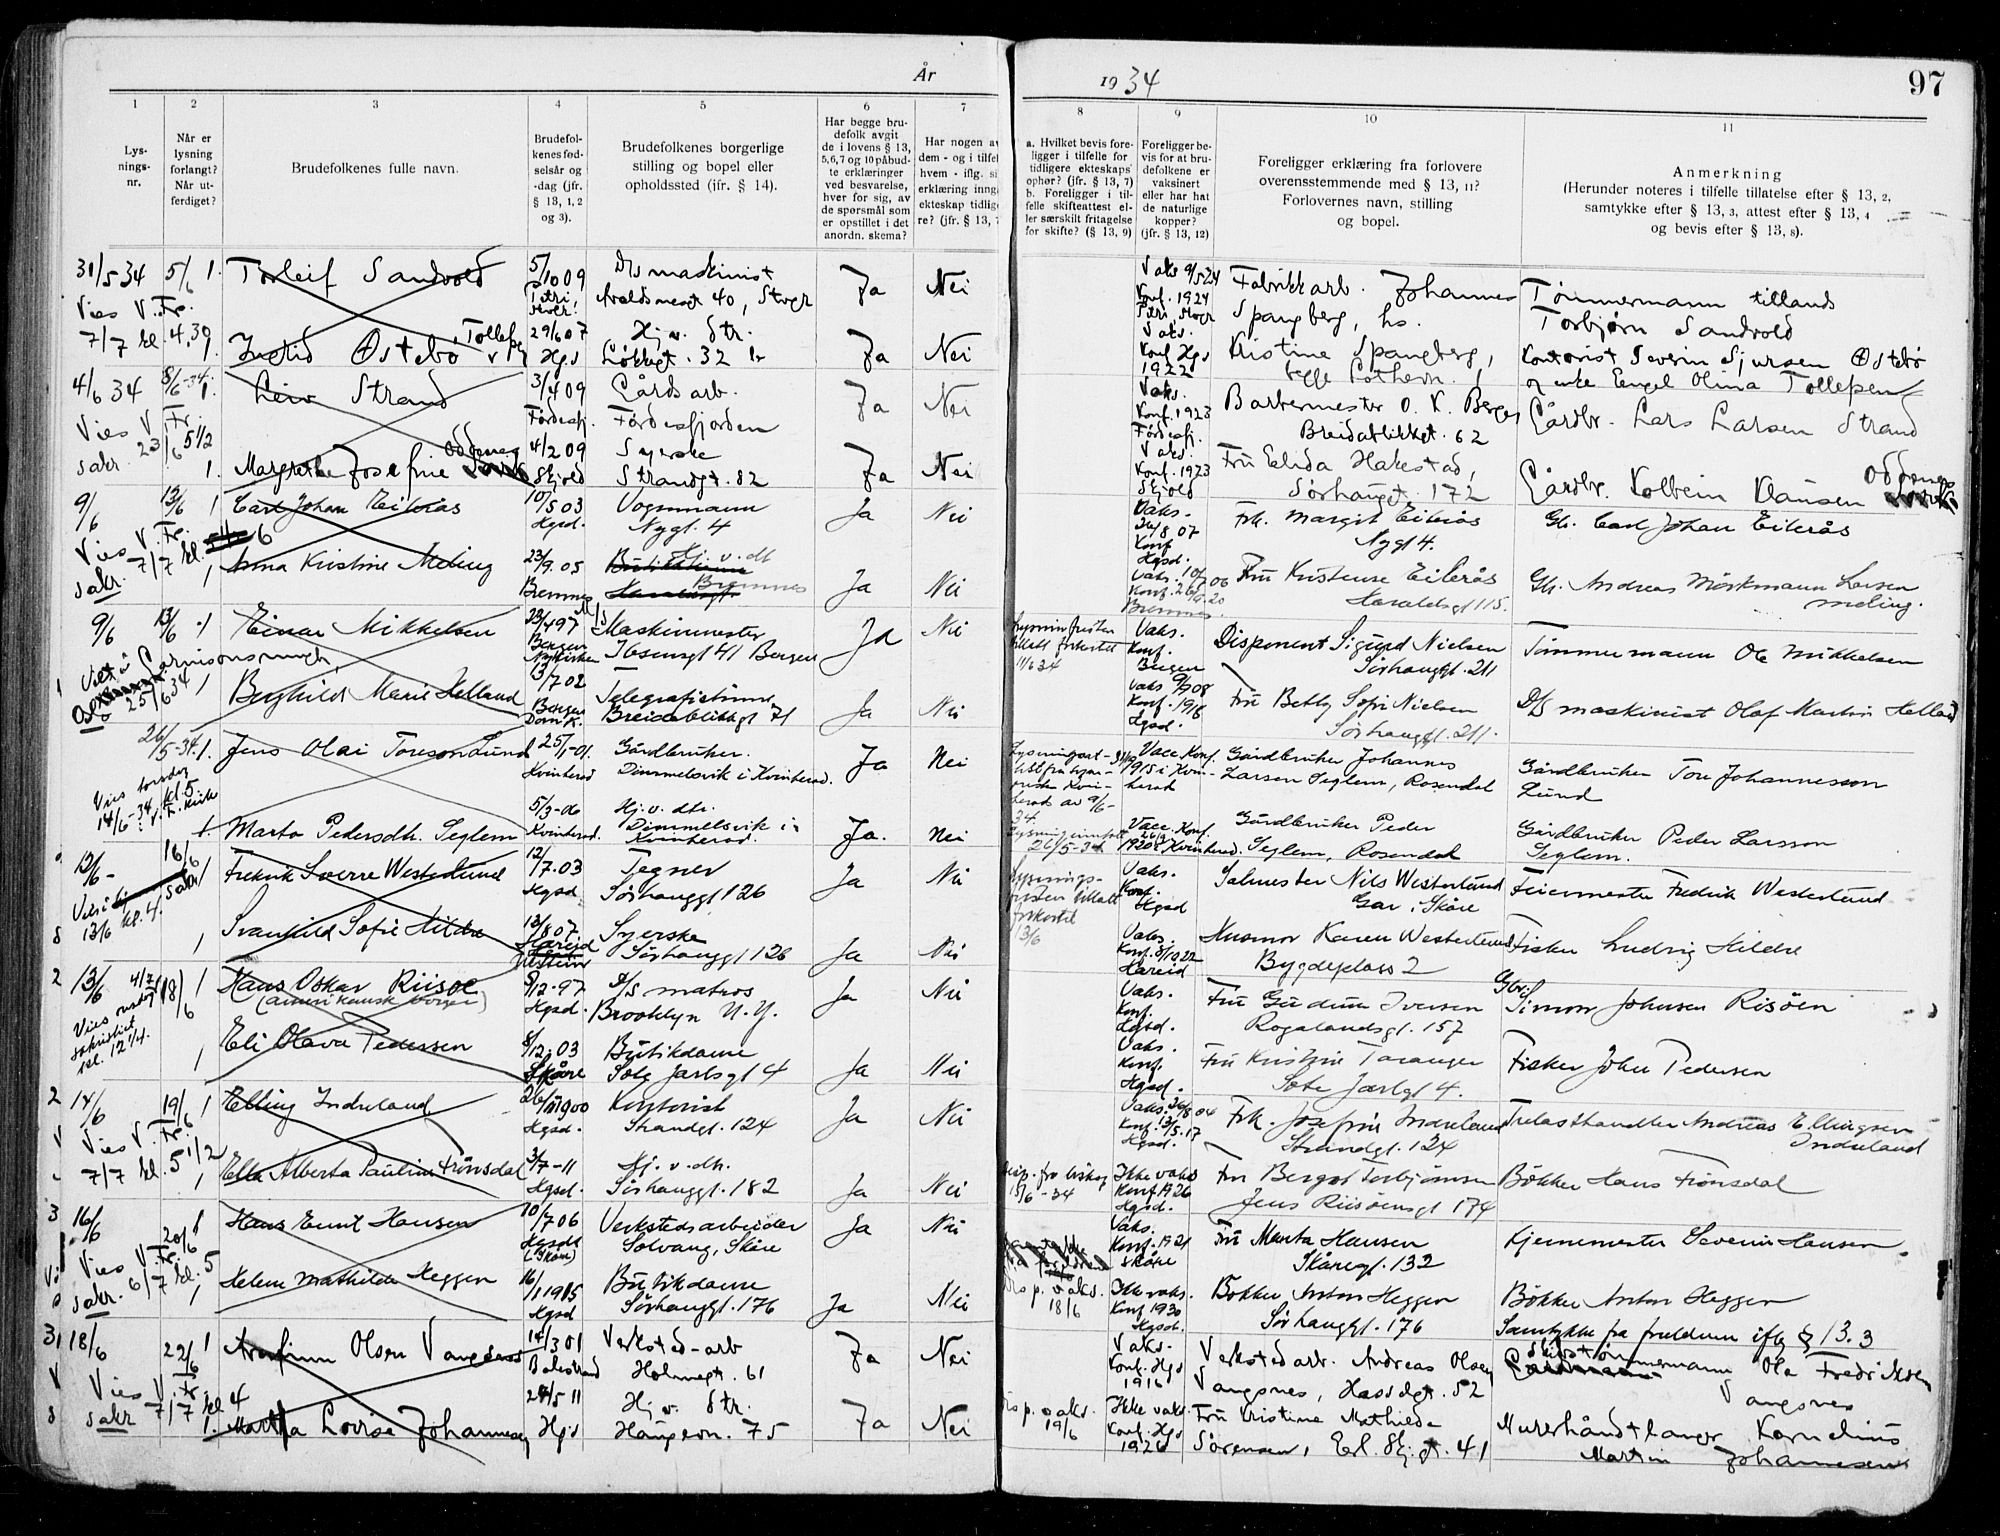 År 1934
97
1
2
3
4
5
6
7
8
9
10
11
Lys-
nings-
nr.
Når er
lysning
forlangt?
Når ut-
ferdiget?
Brudefolkenes fulle navn.
Brudefol-
kenes fød-
selsår og
-dag (jfr.
§ 13, 1, 2
og 3).
Brudefolkenes borgerlige
stilling og bopel eller
opholdssted (jfr. § 14).
Har begge bru-
defolk avgit
de i lovens § 13,
5,6,7 og 10 påbud-
te erklæringer
ved besvarelse,
hver for sig, av
de spørsmål som
er opstillet i det
anordn. skema?
Har nogen av
dem - og i tilfel
hvem - iflg. si
erklæring inng
ekteskap tidlig
re? (jfr. § 13, 7
a. Hvilket bevis fore-
ligger i tilfelle for
tidligere ekteskaps
ophør? (jfr. § 13, 7)
b. Foreligger i til-
felle skifteattest el-
ler særskilt fritagelse
for skifte? (§ 13, 9)
Foreligger be-
vis for at bru-
defolkene er
vaksinert
eller har hat
de naturlige
kopper?
(jfr. § 13, 12)
Foreligger erklæring fra forlovere
overensstemmende med § 13, 11?
Forlovernes navn, stilling
og bopel.
Anmerkning
(Herunder noteres i tilfelle tillatelse efter § 13, 2,
samtykke efter § 13, 3, attest efter § 13, 4
og bevis efter § 13, 8).
31/5 34 5/6 1. Torleif Sandvold 5/10 09 D/s maskinist Ja Nei Vaks 9/5 24 Fabrikkarb. Johannes Tømmermann
Vies V. Fr. Petri, Avaldsnesgt 40, Stvgr Konf. 1924 Spangberg, hs. Torbjørn Sandvold
7/7 kl. 4,30 1. Ingrid Østebø, Tollefs 29/6 07 Hj. v. dtr. Ja Nei Vaks. Kristine Spangberg, Kontorist Severin Sjursen Østebø
Hgs Løkkegt. 32 Konf. Hgs 1922 begge og enke Engel Olina Tollefsen
4/6 34 8/6-34. 1. Leiv Strand 3/4 09 Gårdsarb. Ja Nei Vaks. Barbermester O. K. Berge Gårdbr. Lars Larsen Strand
Vies V. Fr. Førdesfj. Førdesfjorden Konf. 1923 Breidablikkgt. 62
sakr. 23/6 5 1/2 1. Margrethe Josefine Oddenes 4/2 09 Syerske Ja Nei Vaks. Fru Elida Hakestad, Gårdbr. Kolbein Klausen Oddenes
Skjold Strandgt. 82 Konf. 1923 Skjold Sørhauggt. 172
9/6 13/6 1 Carl Johan Eikerås 10/5 03 Vognmann Ja Nei Vaks. Frk. Margit Eikerås Gb. Carl Johan Eikerås
Vies V. Fr. 6 Hgsd. Nygt. 4 26/8 07 Konf Hgsd. Nygt 4.
sakr. 7/7 kl. 1 Anna Kristine Meling 23/9. 05 Hj. v. dt Ja Nei Vaks. 10/7 06 Fru Kristense Eikerås Gb. Andreas Mørkmann Larsen
Bremnes Bremnes Bremnes Haraldsgt 115. Meling.
9/6 13/6 1 Einar Mikkelsen 23/4 97 M/s Maskinmester Ja Nei Vaks. Konf. Disponent Sigurd Nielsen Tømmermann Ole Mikkelsen
Viet i Garnisonsmenigh, Bergen Ibsensgt 41 Bergen 11/6 34 Bergen Sørhauggt. 211
Oslo 25/6 34 1 Berghild Marie Helland 13/7 02 Telegrafistinne Ja Nei Vaks 9/7 08 Fru Betty Sofie Nielsen D/S maskinist Olaf Martin Helland
Bergen Domk. Breidablikkgt 71 Konf. 1916 Hgsd. Sørhauggt. 211.
26/5-34. 1. Jens Olai Toreson Lund 25/1-01. Gårdbruker. Ja Nei Vacc. Konf. Gårdbruker Johannes Gårdbruker Tore Johannesson
Vies torsdag Kvinherad Dimmelsvik i Kvinherad. 1915 i Kvinherad Larsen Seglem, Rosendal Lund
14/6-34 kl. 5 i V. F. Kirke
1. Marta Pedersdtr. Seglem 5/3-06 Hj. v. dtr. Ja. Nei Vacc. Konf. Gårdbruker Peder Gårdbruker Peder Larsson
Kvinherad. Dimmelsvik i Kvinherad. 26/5-34 Kvinherad. Seglem, Rosendal Seglem.
12/6- 16/6 Fredrik Sverre Westerlund 12/7. 03 Tegner Ja Nei Vaks. Salmester Nils Westerlund Feiermester Fredrik Westerlund
13/6 kl. 4. Hgsd Sørhauggt 126 13/6 Konf. Hgsd Gar, Skåre
1 Svanhild Sofie Hildre 13/8 07 Syerske Ja Nei Vaks. Husmor Karen Westerlund Fisker Ludvig Hildre
Hareid Sørhauggt 126 Hareid Bygdeplass 2
13/6 18/6 1 Hans Oskar Riisøe 8/12-97 S/S matros Ja Nei Vaks. Fru Gudrun Iversen Simon Johnsen Risøen
(amerikansk borger) Hgsd. Brooklyn N. Y. Konf. Hgsd. Rogalandsgt. 157
sakristiet kl. 12 1/4. 1 Eli Olava Pedersen 8/12. 03 Butikdame Ja Nei Vaks. Fru Kristine Taranger Fisker John Pedersen
Skåre Sote Jarlsgt 4 Konf. Hgsd. Sote Jarlgt 4.
14/6 19/6 1 Elling Indreland 26/1 1900 Kontorist Ja Nei Vaks. 26/8 04 Frk. Josefine Indreland Trelasthandler Andreas Ellingsen
Vies V. Fr. Hgsd. Strandgt. 124 Konf. 13/5. 17 Hgsd. Strandgt. 124 Indreland
7/7 kl. 5 1/2 1 Ella Alberta Pauline Frønsdal 3/7-11 Hj. v. dtr. Ja Nei 15/6-34 Ikke vaks Fru Bergot Torbjørnsen Bøkker Hans Frønsdal
Hgsd. Sørhauggt. 182 Konf 1926 Hgsd. Jens Riisøensgt 174
16/6 20/6 1 Hans Ernt Hansen 10/7 06 Verkstedsarbeider Ja Nei Vaks. Fru Marta Hansen Kjernemester Severin Hansen
Vies V. Fr. Hgsd (Skåre) Solvang, Skåre Konf. 1921 Skåre Skåregt. 132
sakr. 6/7 kl. 5 1 Helene Mathilde Heggen 16/1 1915 Butikdame Ja Nei Disp. vaks. 18/6 Ikke vaks. Bøkker Anton Heggen Bøkker Anton Heggen
Hgsd Sørhauggt. 176 Konf 1930 Hgsd. Sørhauggt. 176 Samtykke fra foreldrene iflg § 13. 3
18/6 22/6 1 Arnfinn Olsen Vangsnes 14/3 01 Verksted-arb Ja Nei Vaks. Verkstedarb. Andreas Olsen Skibstømmermann Ole Fredriksen
Vies V. Fr. Balestrand Holmegt. 61 Konf. Hgs 1916 Vangsnes, Hasselgt. 52 Vangsnes
sakr 7/7 kl 4 1. Martha Lovise Johannesen 24/5 11 Hj. v. dtr. Ja Nei Disp. vaks. 19/6 Ikke vaks. Fru Kristine Mathilde Murerhåndtlanger Kornelius
Hgs Haugevn. 75 Konf. Hgs 1926 Sørensen, Erl. Skj. gt. 41 Martin Johannesen